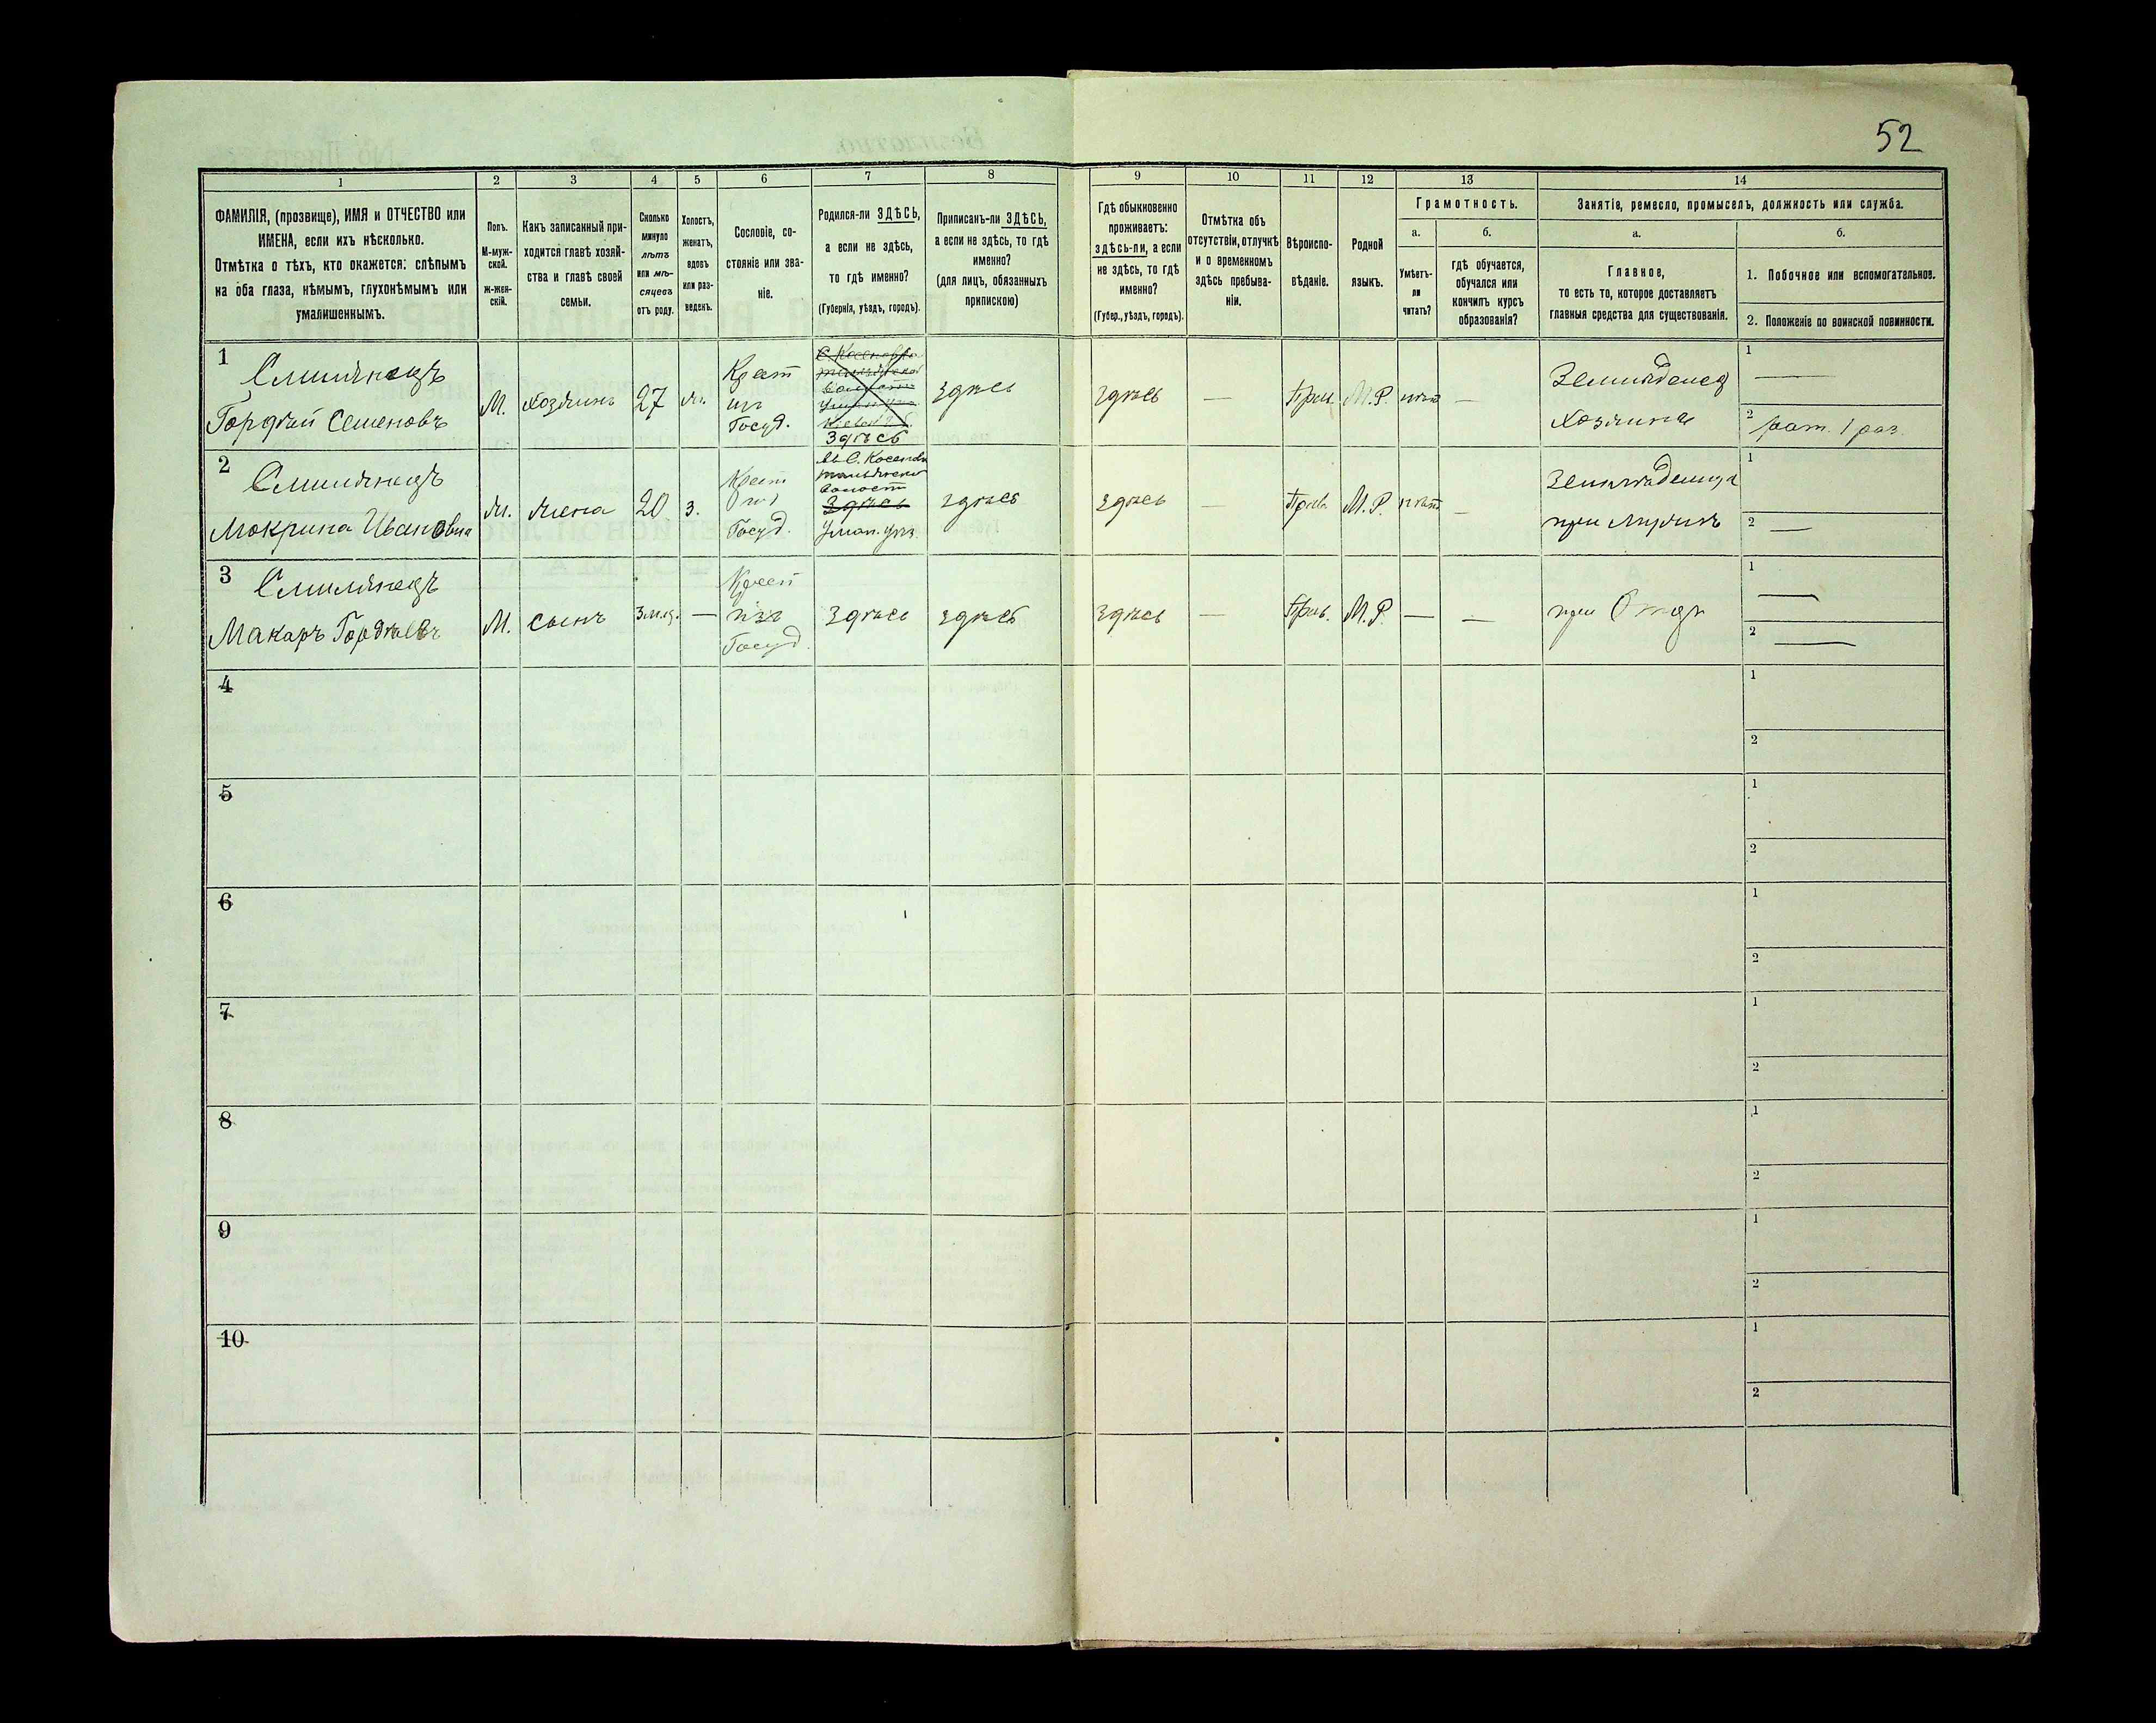 52
1
2
3
4
5
6
7
8
9
10
11
12
13
14
ФАМИЛІЯ, (прозвище), ИМЯ и ОТЧЕСТВО или
ИМЕНА, если ихъ нѣсколько.
Отмѣтка о тѣхъ, кто окажется: слѣпымъ
на оба глаза, нѣмымъ, глухонѣмымъ или
умалишеннымъ.
Полъ.
М-муж-
ской.
ж-жен-
скій.
Какъ записанный при-
ходится главѣ хозяй-
ства и главѣ своей
семьи.
Сколько
минуло
лѣтъ
или мѣ-
сяцевъ
отъ роду.
Холостъ,
женатъ,
вдовъ
или раз-
веденъ.
Сословіе, со-
стояніе или зва-
ніе.
Родился-ли ЗДѢСЬ,
а если не здѣсь,
то гдѣ именно?
(Губернія, уѣздъ, городъ).
Приписанъ-ли ЗДѢСЬ,
а если не здѣсь, то гдѣ
именно?
(для лицъ, обязанныхъ
припискою)
Гдѣ обыкновенно
проживаетъ:
здѣсь-ли, а если
не здѣсь, то гдѣ
именно?
(Губер., уѣздъ, городъ).
Отмѣтка объ
отсутствіи, отлучкѣ
и о временномъ
здѣсь пребыва-
ніи.
Вѣроиспо-
вѣданіе.
Родной
языкъ.
Грамотность.
а.
Умѣетъ-
ли
читать?
б.
гдѣ обучается,
обучался или
кончилъ курсъ
образованія?
Занятіе, ремесло, промыселъ, должность или служба.
а.
Главное,
то есть то, которое доставляетъ
главныя средства для существованія.
б.
1. Побочное или вспомогательное.
2. Положеніе по воинской повинности.
1
Смилянецъ
Гордѣй Семеновъ
М.
хозяинъ
27
ж.
Крест
изъ
Госуд.
Здѣсь
здѣсь
здѣсь
—
Прав.
М.Р.
нѣтъ
—
Земледелец
хозяинъ
1
—
2
рат. 1 раз.
2
Смилянецъ
Мокрина Ивановна
ж.
жена
20
з.
Крест
изъ
Госуд.
въ С. Косеновк
волост
Здѣсь
Уман. уѣз.
здѣсь
здѣсь
—
Прав.
М.Р.
нѣтъ
—
при мужѣ
1
2
—
3
Смилянецъ
Макаръ Гордѣевъ
М.
сынъ
3 мѣс.
—
Крест
изъ
Госуд.
Здѣсь
здѣсь
здѣсь
—
Прав.
М.Р.
—
—
при Отцѣ
1
—
2
—
4
1
2
5
1
2
6
1
2
7
1
2
8
1
2
9
1
2
10
1
2